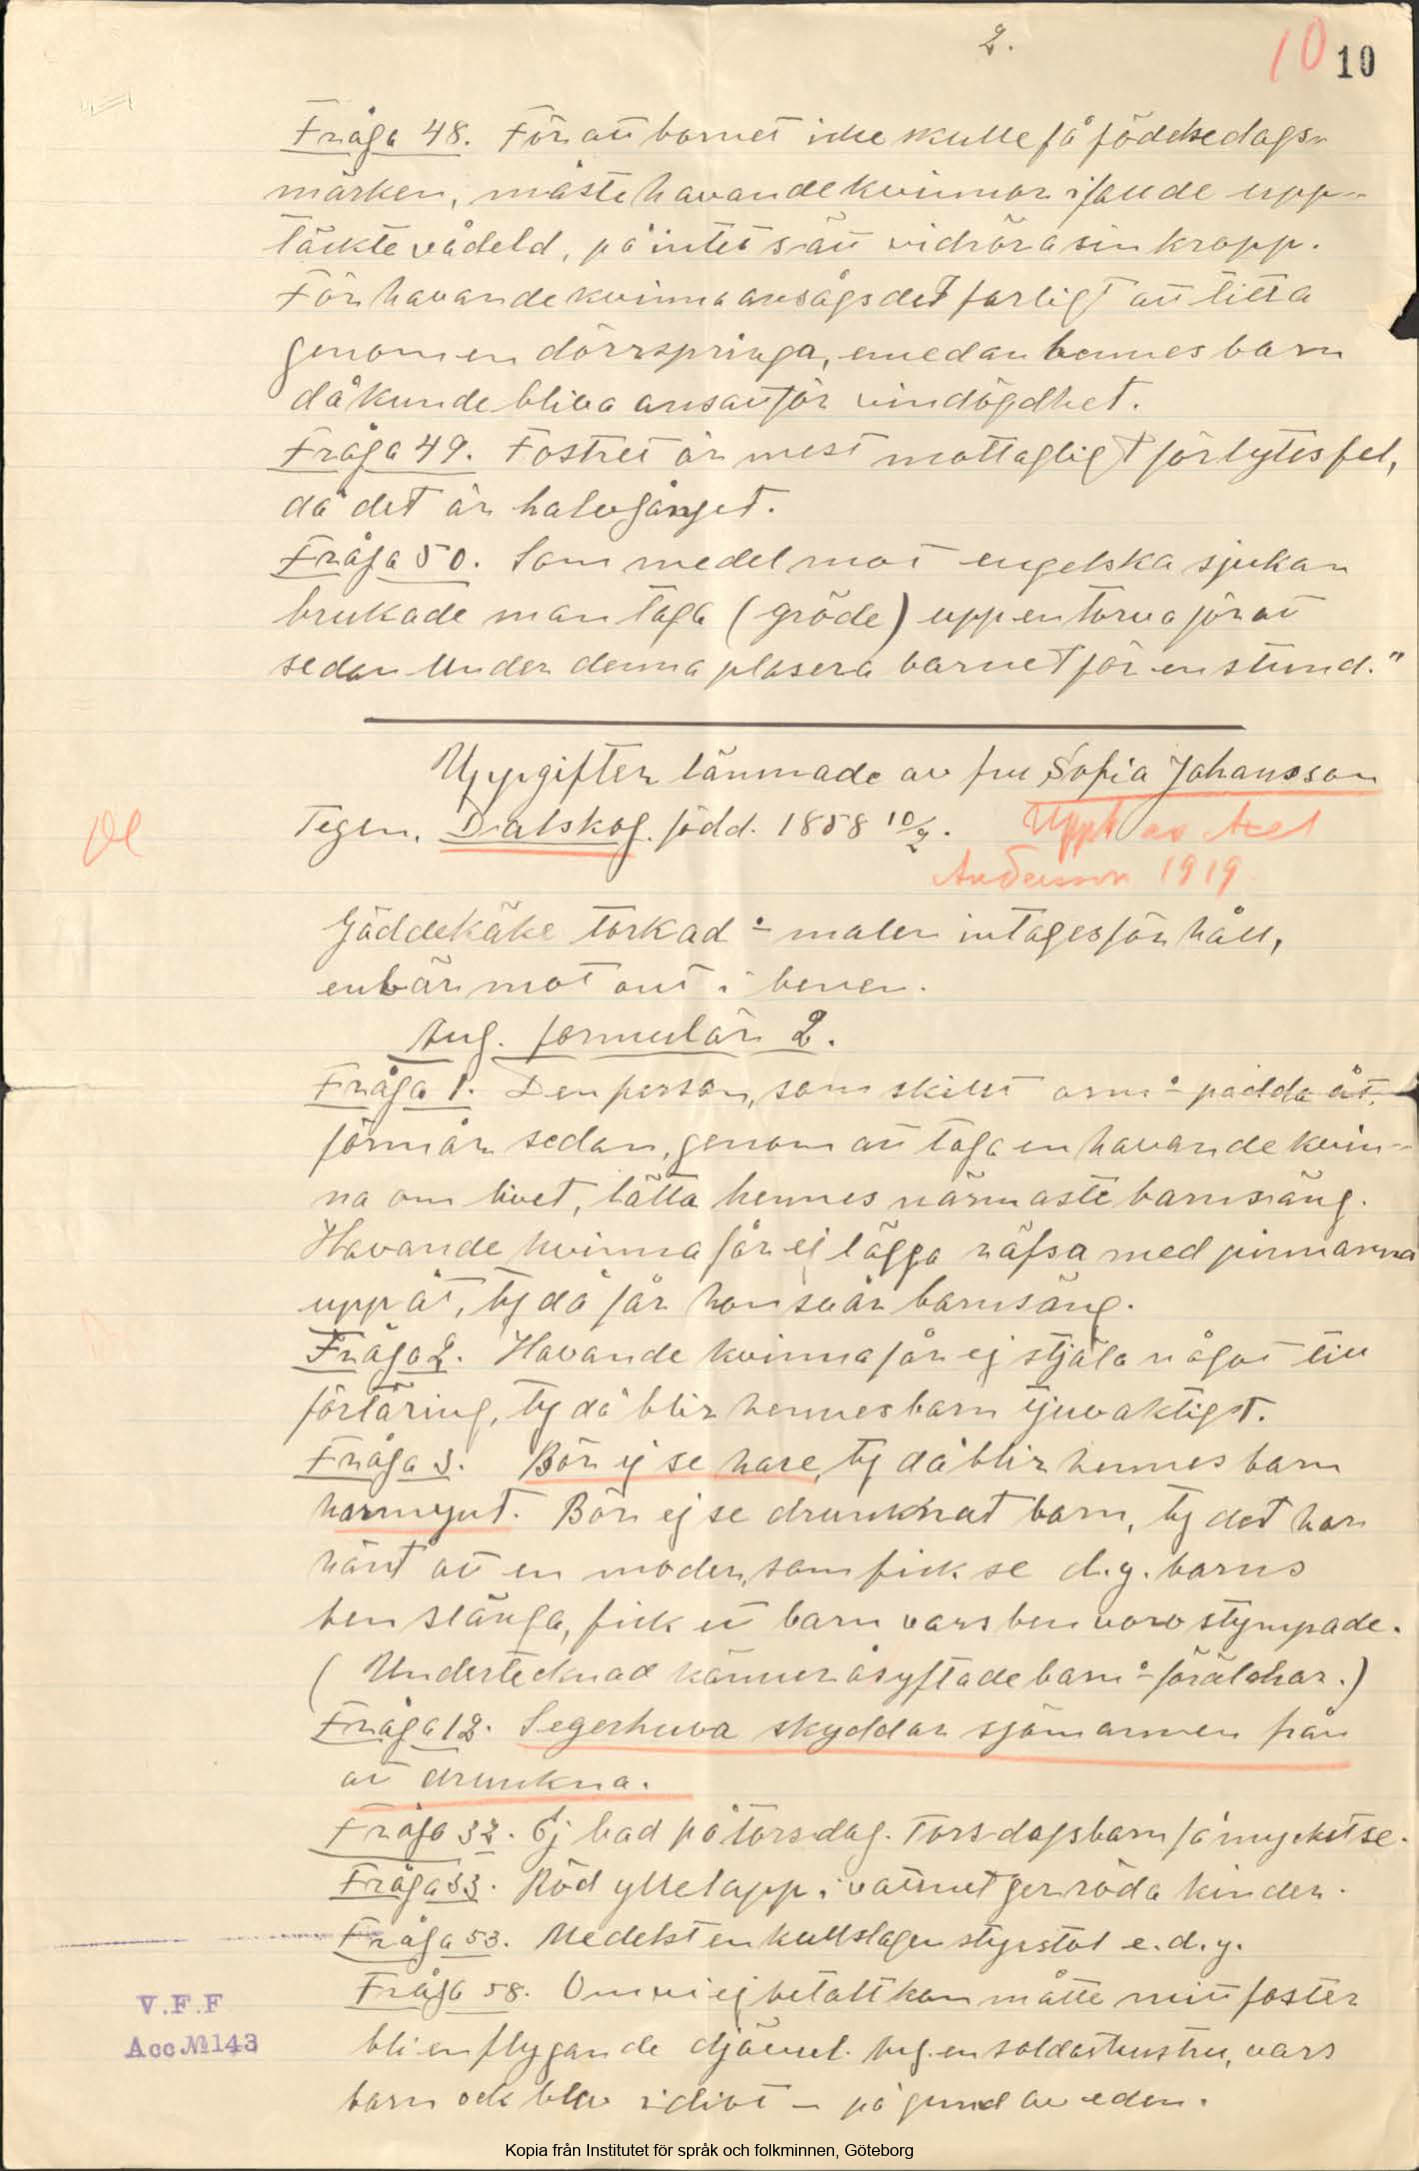 2.
10 10
Fråga 48. För att barnet icke skulle få födelsedags-
märken, måste havande kvinnor ifall de upp-
täckte vådeld, på intet sätt vidröra sin kropp.
För havande kvinna ansågs det farligt att titta
genom en dörrspringa, emedan hennes barn
då kunde bliva ansatt för vindögdhet.
Fråga 49. Fostret är mest mottagligt för lytesfel,
då det är halvgånget.
Fråga 50. Som medel mot engelska sjukan
brukade man taga (gröde) upp en torva för att
sedan under denna plasera barnet för en stund."
Uppgifter lämnade av fru Sofia Johansson
Tegen, Dalskog. född. 1858 10/2.
Uppt av Axel
Andersson 1919
Dl
Gäddekäke torkad o malen intages för håll,
enbär mot ont i benen.
Ang. formulär 2.
Fråga 1. Den person, som skillt orm o padda åt,
förmår sedan, genom att taga en havande kvin-
na om livet, lätta hennes närmaste barnsäng.
Havande kvinna får ej lägga räfsa med pinnarna
uppåt, ty då får hon svår barnsäng.
Fråga 2. Havande kvinna får ej stjäla något till
förtäring, ty då blir hennes barn tjuvaktigt.
Fråga 3. Bör ej se hare, ty då blir hennes barn
harmynt. Bör ej se drunknat barn, ty det har
hänt att en moder, som fick se d.y. barns
ben slänga, fick ett barn vars ben voro stympade.
(Undertecknad känner åsyftade barn o föräldrar.)
Fråga 12. Segerhuva skyddar sjömannen från
att drunkna.
Fråga 32. Ej bad på torsdag. Torsdagsbarn få mycket se.
Fråga 33. Röd yllelapp i vattnet ger röda kinder.
Fråga 53. Medelst en kullslagen stol e.d.y.
Fråga 58. Om vi ej betalt kon måtte mitt foster
bli en flygande djävul. en soldathustru, vars
barn ock blev idiot – på grund av eden.
V.F.F
Acc № 143
Kopia från Institutet för språk och folkminnen, Göteborg